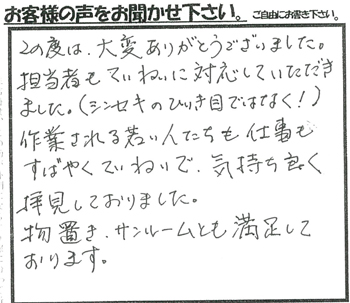 お客様の声をお聞かせ下さい。ご自由にお書き下さい。
この度は、大変ありがとうございました。
担当者もていねいに対応していただき
ました。(シンセキのひいき目ではなく!)
作業される若い人たちも仕事も
すばやくていねいで、気持ち良く
拝見しておりました。
物置き、サンルームとも満足して
おります。